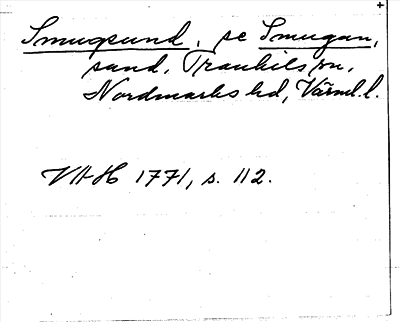 Smugsund, se Smugan,
sund, Trankils sn,
Nordmarks hd, Värml. l.
VAH 1771, s. 112.